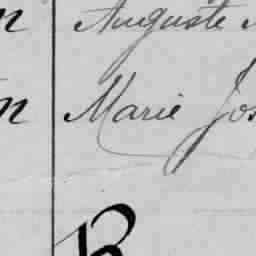 n Auguste
n Marie Jos
B